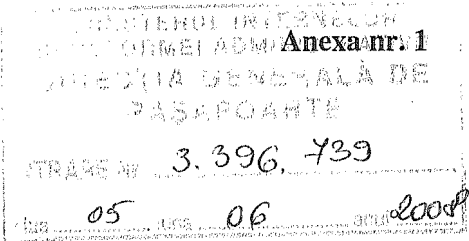 MINISTERUL INTERNELOR
REFORMEI ADMINISTRATIVE
Anexa nr. 1
DIRECŢIA GENERALĂ DE
PAŞAPOARTE
INTRARE Nr 3.396.739
Ziua 05 Luna 06 anul 2008